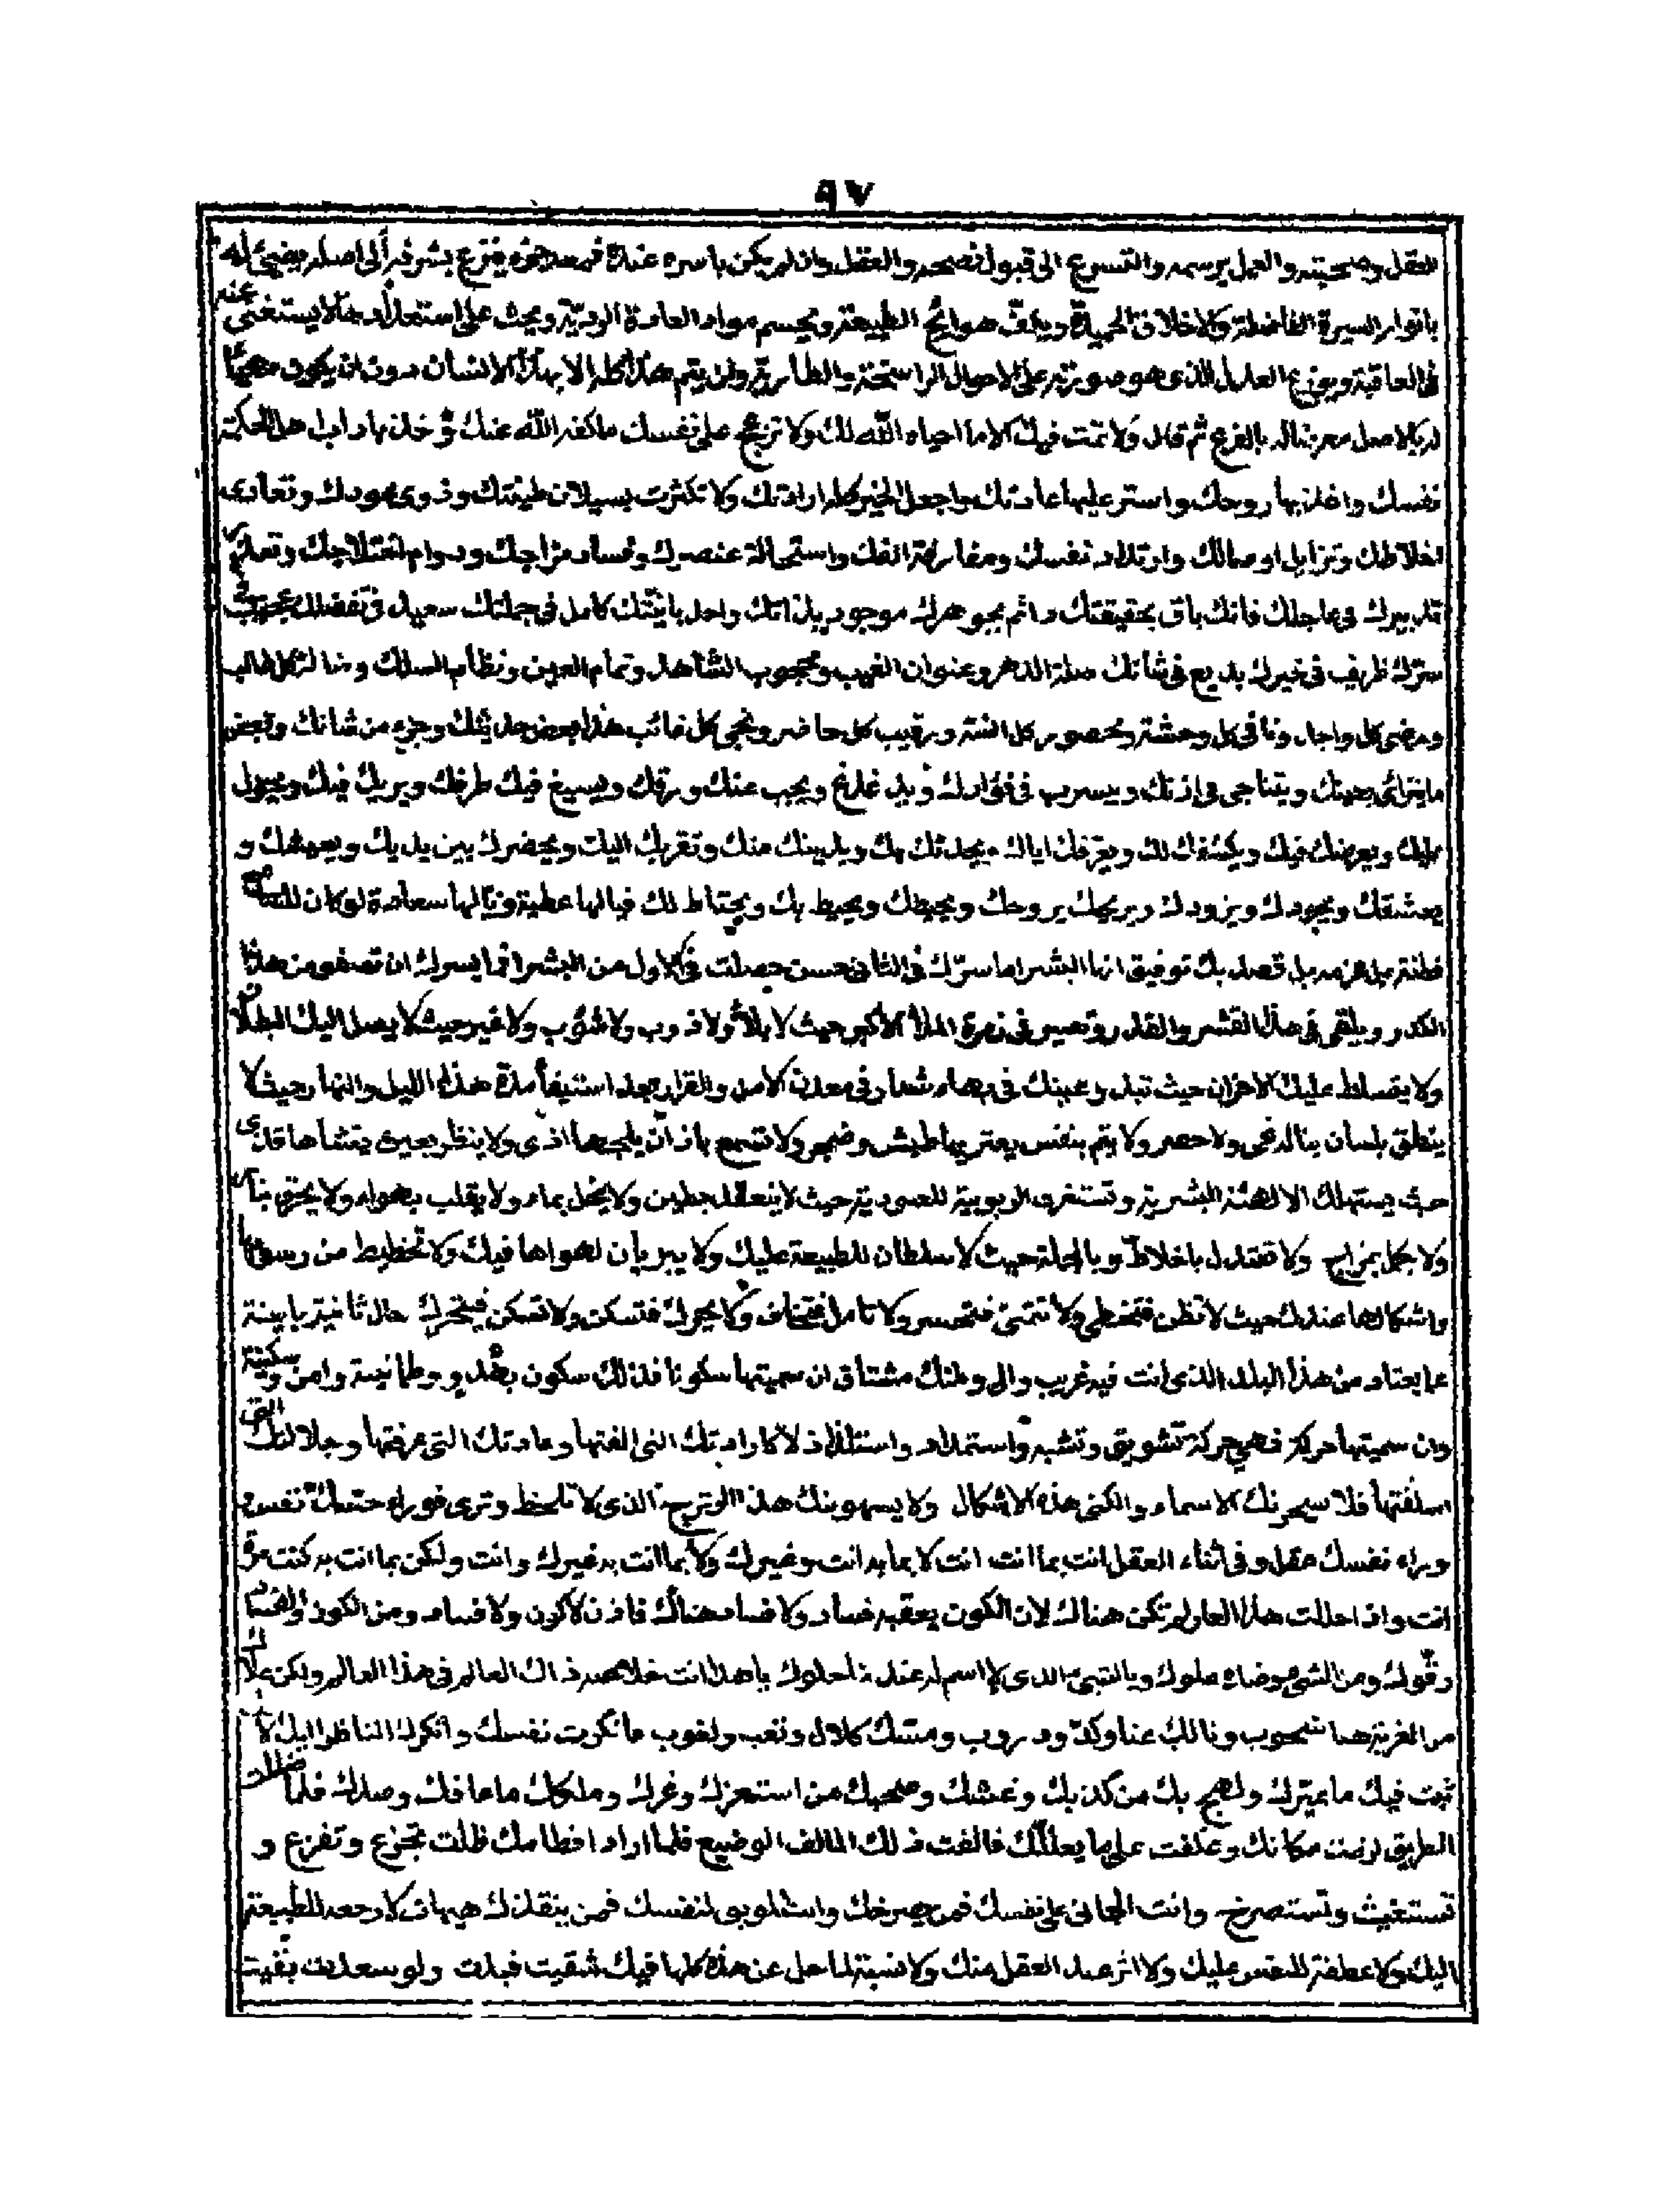 ٩٧
العقل وصحبته والعمل برسمه والتسرع الى قبول نصحه والعقل وان لم يكن باسره عندك فمعه جزء ينزع بشوقه الى اصله يضيئ له
بانوار السيرة الفاضلة والاخلاق الحميدة ويكف هوائج الطبيعة ويحسم مواد العادة الردية ويحث على استعداد مالا يستغنى عنه
فى العاقبة ويوزع العدل الذى هو صورته على الاحوال الراسخة والطارية ولن يتم هذا كله الا بهذا الانسان دون ان يكون مهيئا
له بالاصل معرضا له بالفرع ثم قال ولا تمت فيك الا ما احياه الله لك ولا تزعج على نفسك ما كفه الله عنك وخذ باداب اهل الحكمة
نفسك واغذ بها روحك واستر عليها عادتك واجعل الخير كله ارادتك ولا تكترث بسيلان طينتك وذوى عودك وتعادى
اخلاطك وتزايل اوصالك وارتداد نفسك ومفارقة الفك واستحالة عنصرك وفساد مزاجك ودوام اختلاجك وتعذر
تدبيرك فى عاجلك فانك باق بحقيقتك دائم بجوهرك موجود بذاتك واحد بانيتك كامل فى جملتك سعيد فى تفضلك عجيب فى
سرك ظريف فى خيرك بديع فى شانك صلة الدهر وعنوان الغيب ومحجوب الشاهد وتمام العين ونظام السلك وضالة كل طالب
ومضى كل واجد ونافى كل وحشة ومخصوص كل انسة ورقيب كل حاضر ونجى كل غائب هذا بعض حديثك وجزء من شانك وبعض
ما يترائى بعينك ويتناجى فى اذنك ويسرب فى فؤادك ويحجب عنك ورقك ويسيغ فيك طرفك ويريك فيك ويحول
عليك ويعرضك فيك ويكشفك لك ويعرفك اياك ويحدثك بك ويدنيك منك وتقربك اليك ويحضرك بين يديك ويدهشك و
يعشقك ويجودك ويزودك ويريحك بروحك ويحيطك ويحيط بك ويحتاط لك فيالها عطية ويالها سعادة لو كان للسامع
فطنة بل عزمة بل قصد بك توفيق ايها البشر اما سرك فى الثانى حسن حصلت فى الاول من البشر افما يسرك ان تصفو من هذا
الكدر ويلقى فى هذا القشر والقذر وتصير فى زمرة الملأ الاكبر حيث لا بلاء ولا ذوب ولا شوب ولا غير حيث لا يصل اليك البطلان
ولا يتسلط عليك الاحزان حيث تبدو عينك فى بهاء شعار فى معدن الامن والقرار بعد استيفاء مدة هذه الليل والنهار حيث لا
ينطق بلسان يناله عى ولا حصر ولا يتم بنفس يعتريها طيش وضجر ولا تسمع باذان يلجها اذى ولا ينظر بعين يغشاها قذى
حيث يستهلك الالهية البشرية وتستغرق الربوبية للعبودية حيث لا ينعقد بطين ولا يخل بماء ولا يقلب بهواء ولا يحترق بنار
ولا يحل بمزاج ولا تعتدل باخلاط وبالجملة حيث لا سلطان للطبيعة عليك ولا سريان لهواها فيك ولا تخطيط من رسومها
واشكالها عندك حيث لا تظن فتخطى ولا تتمنى فتحسر ولا تامل فتخاف ولا يجرك فتسكن ولا تسكن فتحرك حال ثانية باينة
عما يعتاد من هذا البلد الذى انت فيه غريب والى وطنك مشتاق ان سميتها سكونا فذلك سكون بهدو وطمانينة وامن وسكينة
وان سميتها حركة فهى حركة تشويق وتشبه واستمداد واستلذاذ لا كارادتك التى الفتها وعادتك التى عرفتها وجلالتك التى
اسلفتها فلا يسحرنك الاسماء والكنى هذه الاشكال ولا يستهوينك هذا الذى لا تلحظ وترى فوراء حسك نفس
وراء نفسك عقل وفى اثناء العقل انت بما انت انت لا بما بدانت وغيرك ولا بما انت به غيرك وانت ولكن بما انت به كنت مرة
انت واذا حللت هذا العالم لم تكن هناك لان الكون يعقبه فساد ولا فساد هناك فاذن لا كون ولا فساد ومن الكون والفساد
وقوله ومن الشئ موضاه ملوك وبالشئ الذى لا اسم له عند ذا حلوك يا هذا انت خلاصة ذاك العالم فى هذا العالم ولكن علاك
من الغربة هنا شحوب ونالك عنا وكد ودروب ومسك كلال وتعب ولغوب فانكرت نفسك وانكرك الناظر اليك لا
ثبت فيك ما غيرك ولهج بك من كذبك وغشك وصحبك من استعزك وغرك وملكك ما عافك وصدك فلما ضللت
الطريق لزمت مكانك وعكفت على ما يعللك فالفت ذلك المالف الوضيع فلما اراد افطامك ظلت تجزع وتفزع و
تستغيث وتستصرخ وانت الجانى على نفسك فمن يصرخك وانت الموبق لنفسك فمن ينقذك هيهات لا رحمة للطبيعة
اليك ولا عطفة للنفس عليك ولا اثر عند العقل منك ولا نسبة لما حل عن هذه كلها فيك شقيت فبدت ولو سعدت بقيت